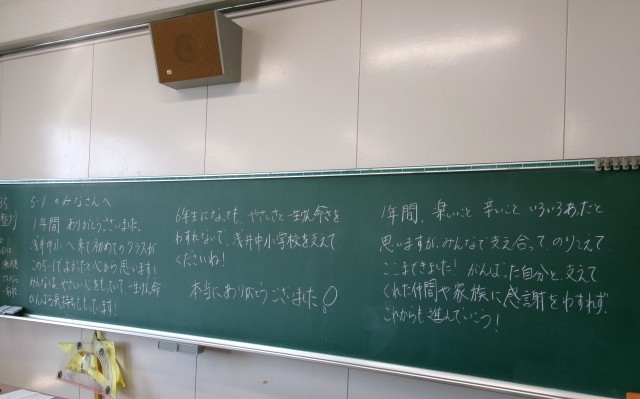 5-1のみなさんへ
1年間 ありがとうございました。
浅井中小へ来て初めてのクラスが
この5-1でよかったと心から思います!
一生けん命
がんばる
6年生になっても、やさしさと一生けん命さを
わすれないで、浅井中小学校を支えて
くださいね!
本当にありがとうございました!
1年間、楽しいこと 辛いこと いろいろあったと
思いますが、みんなで支え合って、のりこえて
ここまできました! がんばった自分と、支えて
くれた仲間や家族に感謝をわすれず、
これからも進んでいこう!